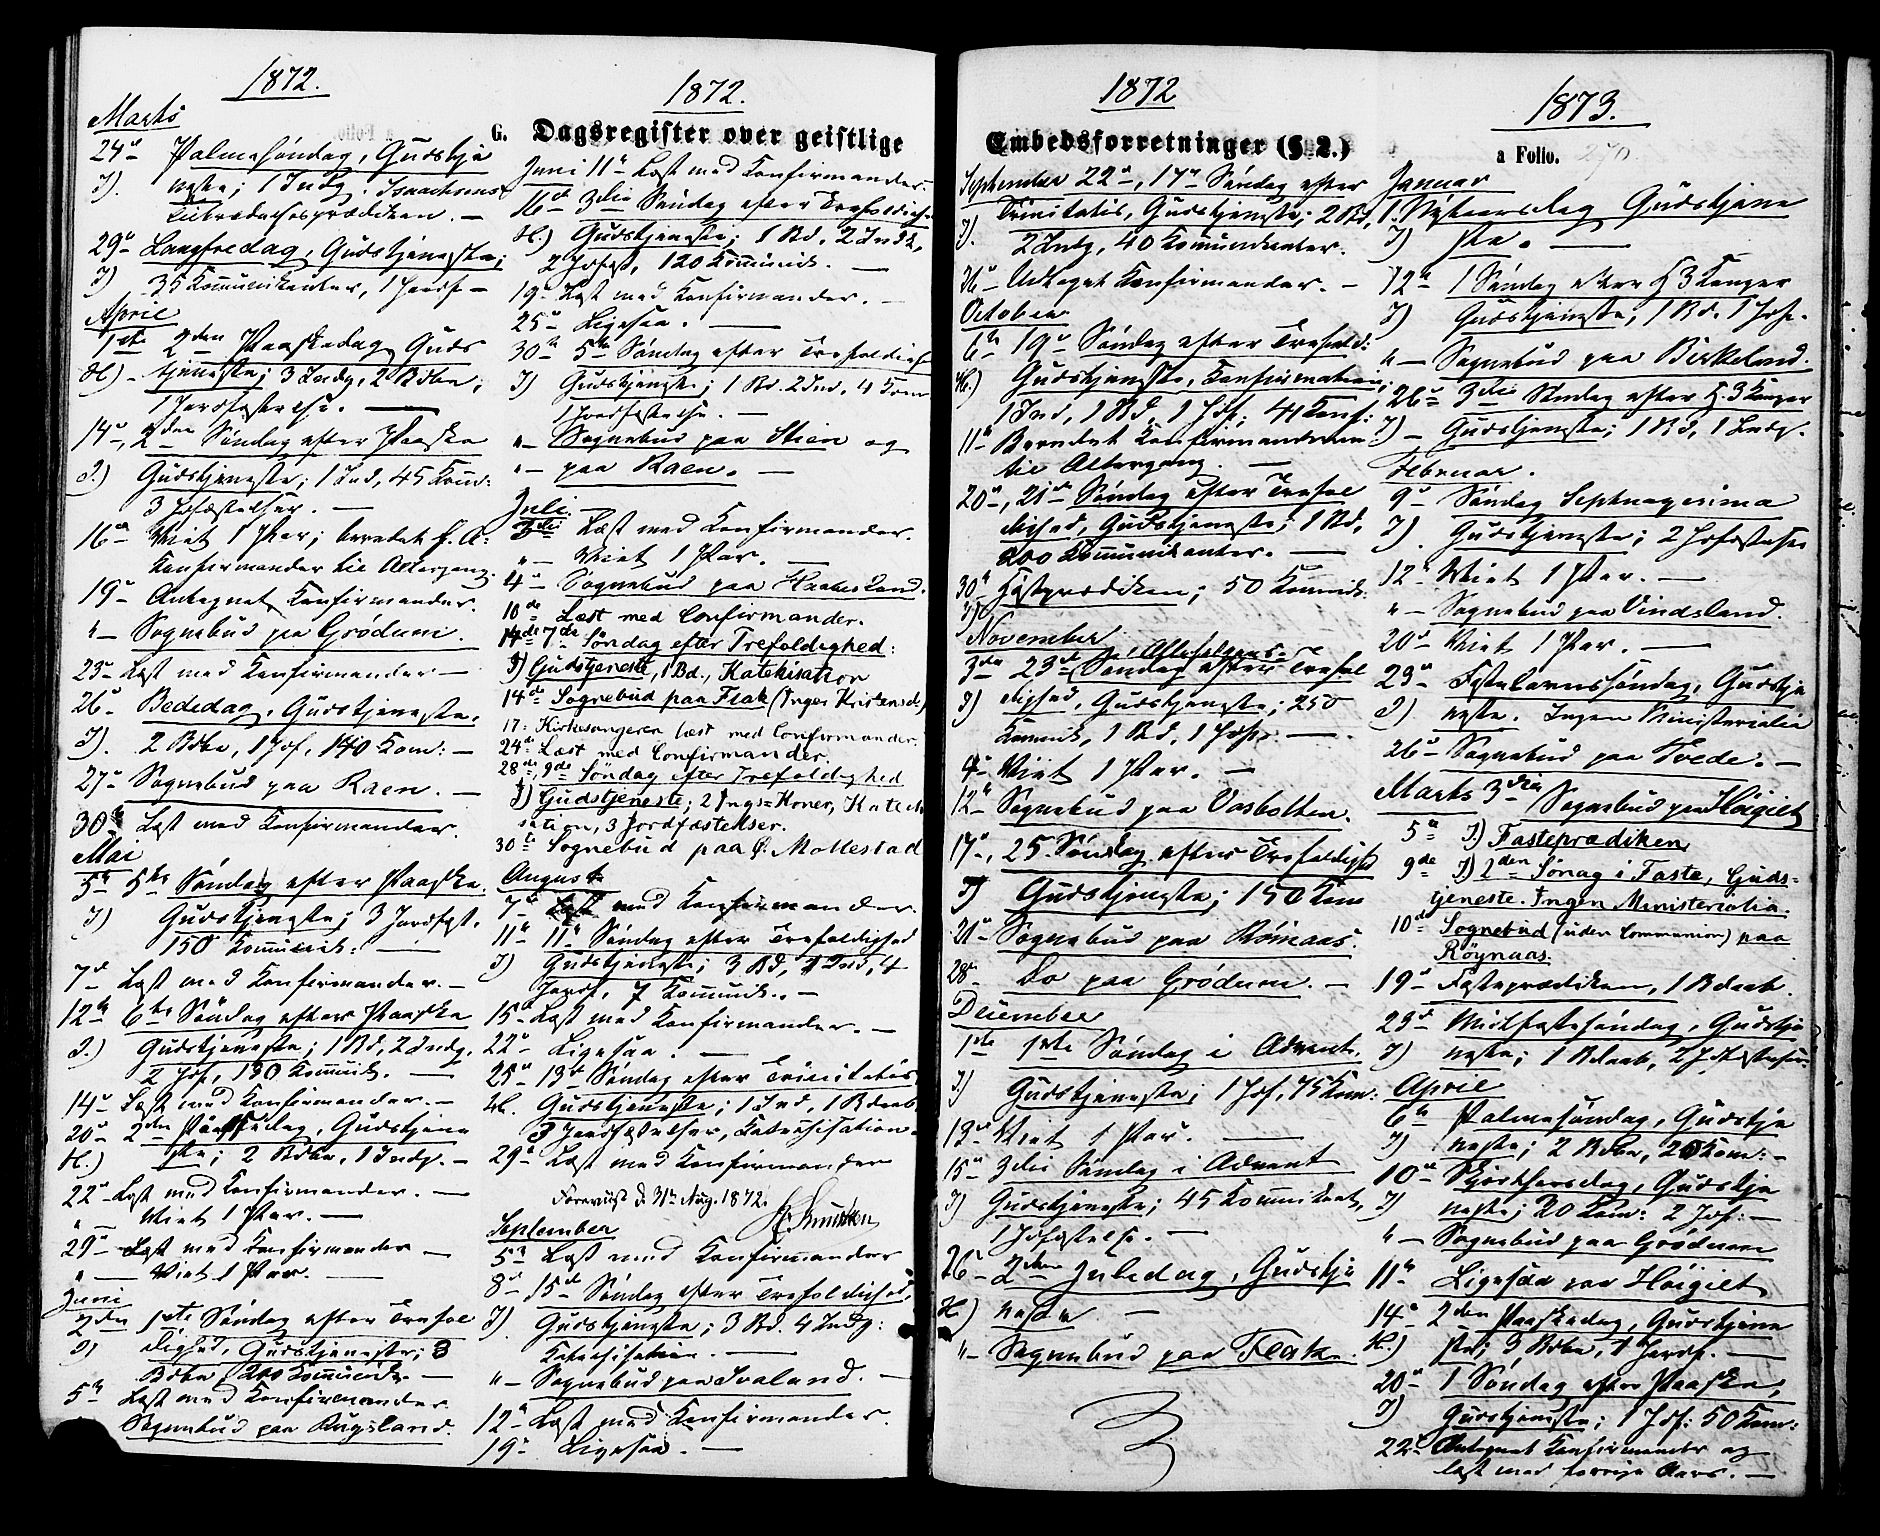 1872.
Marts
24de Palmesøndag, Gudstje
I). neste; 1 Indg. Isaachsens
Tiltrædelsesprædiken. —
29de Langfredag, Gudstjeneste;
I) 35 Kommunikanter, 1 Jordf —
April
1ste 2den Paaskedag Guds
H) — tjeneste; 3 Indg, 2 Bdbn;
1 Jordfæstelse. —
14de, 2den Søndag efter Paaske
I.) Gudstjeneste; 1 Ind, 45 Kom:
3 Jofæstelser. —
16de Viet 1 Par; beredet f. A:
Konfirmander til Altergang.
19de Antegnet Konfirmander.
" — Sognebud paa Grødum.
23de Læst med Konfirmander —
26de Bededag, Gudstjeneste.
I). 2 Bdbn, 1 Jof, 140 Kom: —
27de Sognebud paa Raen. —
30te Læst med Konfirmander.
Mai
5te 5te Søndag efter Paaske.
I) Gudstjeneste; 3 Jordfæst.
150 Kommunik: —
7de Læst med Konfirmander. —
12te 6te Søndag efter Paaske
I.) Gudstjeneste; 1 Bd, 2 Indg.
2 Jof, 130 Kommunik. —
14de Læst med Konfirmander. —
20de 2den Gudstjene
H.) ste; 2 Bdbn, 1 Indg. —
22de Læst med Konfirmander. —
" Viet 1 Par. —
29de Læst med Konfirmander —
" — Viet 1 Par. —
Juni
2den 1ste Søndag efter Trefol
I) dighed, Gudstjeneste; 3
Bdbn, 200 Kommunik —
5te Læst med Konfirmander.
Sognebud paa Rugsland.
1872.
G. Dagsregister over geistlige
Juni 11te Læst med Konfirmander.
16de 3die Søndag efter Trefoldigh.
H.) Gudstjeneste; 1 Bd, 2 Indl,
2 Jofæst, 120 Kommunik. —
19de Læst med Konfirmander. —
25de Ligesaa. —
30te 5te Søndag efter Trefoldigh
I) Gudstjeneste; 1 Bd. 2 Ind, 4 Kom
1 Jordfæstelse. —
" — Sognebud paa Stien og
" — paa Raen. —
Juli.
3die Læst med Konfirmander.
" — Viet 1 Par. —
4de Sognebud paa
10de Læst med Confirmander.
14de 7de Søndag efter Trefoldighed:
I) Gudstjeneste, 1 Bd., Katekisation
14de Sognebud paa Flak (Inger Kristensd.)
17: Kirkesangeren læst med Confirmander.
24de Læst med Confirmander.
28de, 9de Søndag efter Trefoldighed
I) Gudstjeneste; 2 Ings=Koner, Kateki
sation, 3 Jordfæstelser.
30te Sognebud paa Ø. Mollestad
August
7de Læst med Konfirmander.
11te 11te Søndag efter Trefoldighed
I) Gudstjeneste; 3 Bd, 2 Ind, 4
Jordf, 7 Kommunik. —
15de Læst med Konfirmander. —
22de Ligesaa. —
25de 13de Søndag efter Trinitatis
H. Gudstjeneste; 1 Ind, 1 Bdaab,
3 Jordfæstelser, Katechisation.
29de Læst med Konfirmander
Foreviist d. 31te Aug. 1872.
September
5te Læst med Konfirmander
8de 15de Søndag efter Trefoldighed;
I) Gudstjeneste; 3 Bd. 4 Indg:
Katechisation. —
" — Sognebud paa Ivaland. —
12te Læst med Konfirmander.
19de Ligesaa. —
1872
Embedsforretninger (§ 2.)
September 22de, 17de Søndag efter
I). Trinitatis, Gudstjeneste; 2 Bd,
2 Indg, 40 Kommunikanter.
Antegnet Konfirmander. —
October
6te 19de Søndag efter Trefold:
H.) Gudstjeneste, Konfirmation;
1 Ind, 1 Bd, 1 Jof; 41 Konf:
11te Beredet Konfirmanderne
til Altergang. —
20de, 21de Søndag efter Trefol
dighed, Gudstjeneste; 1 Bd,
200 Kommunikanter. —
30te Høstprædiken; 50 Kommunik.
I)
November
3die 23de (Allehelgens-) Søndag efter Trefol
I) dighed, Gudstjeneste; 250
Kommunik, 1 Bd, 1 Jof. —
4de Viet 1 Par. —
12te Sognebud paa Vasbotten.
17de, 25. Søndag efter Trefoldighed
I) Gudstjeneste; 150 Kom
21de Sognebud paa Rømaas.
28de Do paa Grødum. —
December
1ste 1ste Søndag i Advent.
I) Gudstjeneste; 1 Jof, 75 Kom:
13de Viet 1 Par. —
15de 3die Søndag i Advent
I) Gudstjeneste; 45 Kommunikant,
1 Jofæstelse. —
26 — 2den Juledag, Gudstje
H.) neste —
" — Sognebud paa Flak.
1873.
a Folio. 270.
Januar
1. Nytaarsdag Gudstjene
I) ste. —
12te 1 Søndag efter H 3 Konger
I) Gudstjeneste, 1 Bd. 1 Jof.
" — Sognebud paa Birkeland.
26de 3die Søndag efter H 3 Konger
I) — Gudstjeneste; 1 Bd, 1 Indg.
Februar.
9de Søndag Septuagesima
I). Gudstjeneste; 2 Jofæstelser
12te Viet 1 Par. —
" — Sognebud paa Vindsland.
20de Viet 1 Par. —
23de Fastelavnssøndag, Gudstje
I) neste. Ingen Ministerialia
26de Sognebud paa Tvede. —
Marts 3die Sognebud paa Høigilt
5te I) Fasteprædiken
9de I) 2den Sønag i Faste, Guds-
tjeneste. Ingen Ministerialia.
10de Sognebud (uden Communion) paa
Røynaas.
19de Fasteprædiken, 1 Bdaab.
23de Midfastesøndag, Gudstje
I) neste; 1 Bdaab, 2 Jofæstelser
April
6te Palmesøndag, Gudstje
I) neste; 2 Bdbn, 20 Kom: —
10de Skjærthorsdag, Gudstje
I) neste; 20 Kom: 2 Jof: —
" — Sognebud paa Grødum
11te Ligesaa paa Høigilt
14de 2den Paaskedag, Gudstjene
H.) ste; 3 Bdbn, 1 Jordf. —
20de 1 Søndag efter Paaske,
I) Gudstjeneste; 1 Jof: 50 Kom:
22de Antegnet Konfirmander og
læst med forrige Aars. —